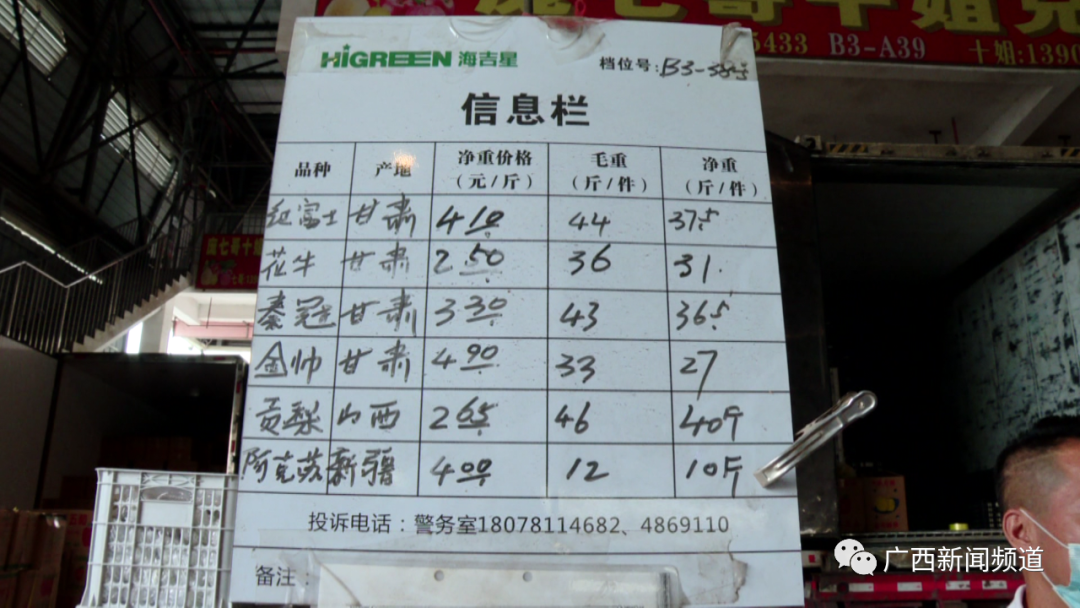 5433 B3-A39 十姐:1390
HIGREEN 海吉星 档位号:B3-
信息栏
品种 产地 净重价格(元/斤) 毛重(斤/件) 净重(斤/件)
红富士 甘肃 4.10 44 37.5
花牛 甘肃 2.50 36 31
秦冠 甘肃 3.30 43 36.5
金帅 甘肃 4.90 33 27
贡梨 山西 2.65 46 40斤
阿克苏 新疆 4.00 12 10斤
投诉电话:警务室18078114682、4869110
备注:
七哥十姐
广西新闻频道